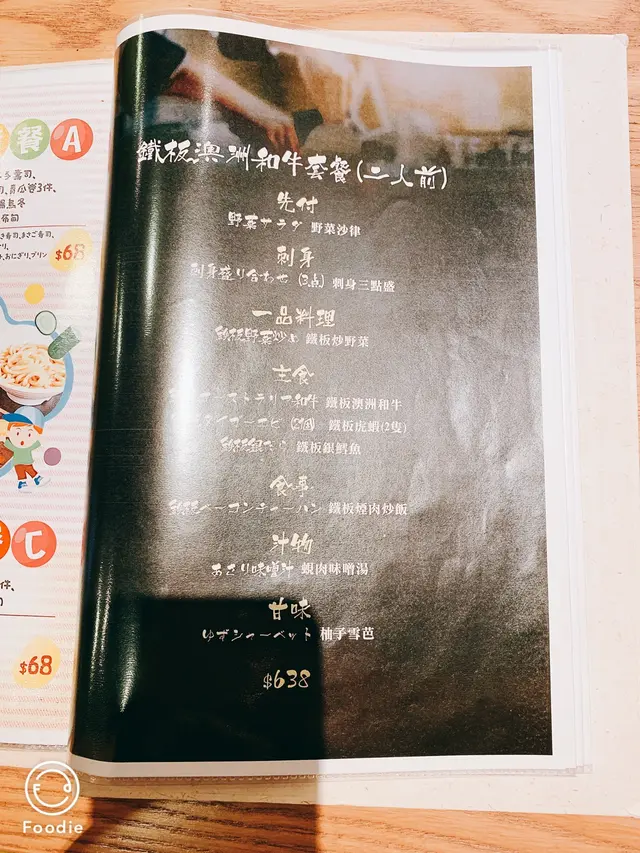 餐A
司、青瓜卷3件、
$68
C
$68
鐵板澳洲和牛套餐(二人前)
先付
野菜サラダ 野菜沙律
刺身
刺身盛り合わせ (3点) 刺身三點盛
一品料理
鉄板野菜炒め 鐵板炒野菜
主食
オーストラリア和牛 鐵板澳洲和牛
タイガーエビ (2個) 鐵板虎蝦(2隻)
鉄板銀だら 鐵板銀鱈魚
食事
鉄板ベーコンチャーハン 鐵板煙肉炒飯
汁物
あさり味噌汁 蜆肉味噌湯
甘味
ゆずシャーベット 柚子雪芭
$638
Foodie